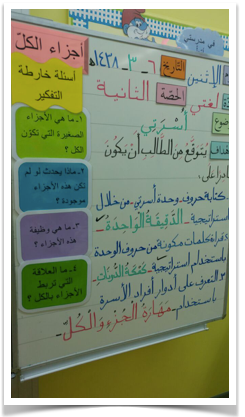 في مدرستي
أجزاء الكل
أسئلة خارطة
التفكير
١ـ ما هي الأجزاء
الصغيرة التي تكوّن
الكل ؟
٢ـ ماذا يحدث لو لم
تكن هذه الأجزاء
موجودة ؟
٣ـ ما هي وظيفة
هذه الأجزاء ؟
٤ـ ما العلاقة
التي تربط
الأجزاء بالكل ؟
الإثنين التاريخ ٦ - ٣ - ١٤٣٨هـ
لغتي الحصة الثانية
أسرتي
يُتوقع من الطالب أن يكون
قادرا على
كتابة حروف وحدة أسرتي من خلال
استراتيجية ـ الدقيقة الواحدة
قراءة كلمات مكونة من حروف الوحدة
باستخدام استراتيجية
٣ـ التعرف على أدوار أفراد الأسرة
باستخدام ـ مهارة الجزء والكل ـ